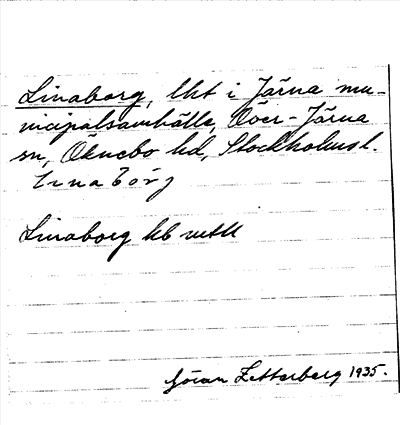 Linaborg, lht i Järna mu-
nicipalsamhälle, Över-Järna
sn, Öknebo hd, Stockholms l.
linabörj
Linaborg kb
Göran Zetterberg 1935.